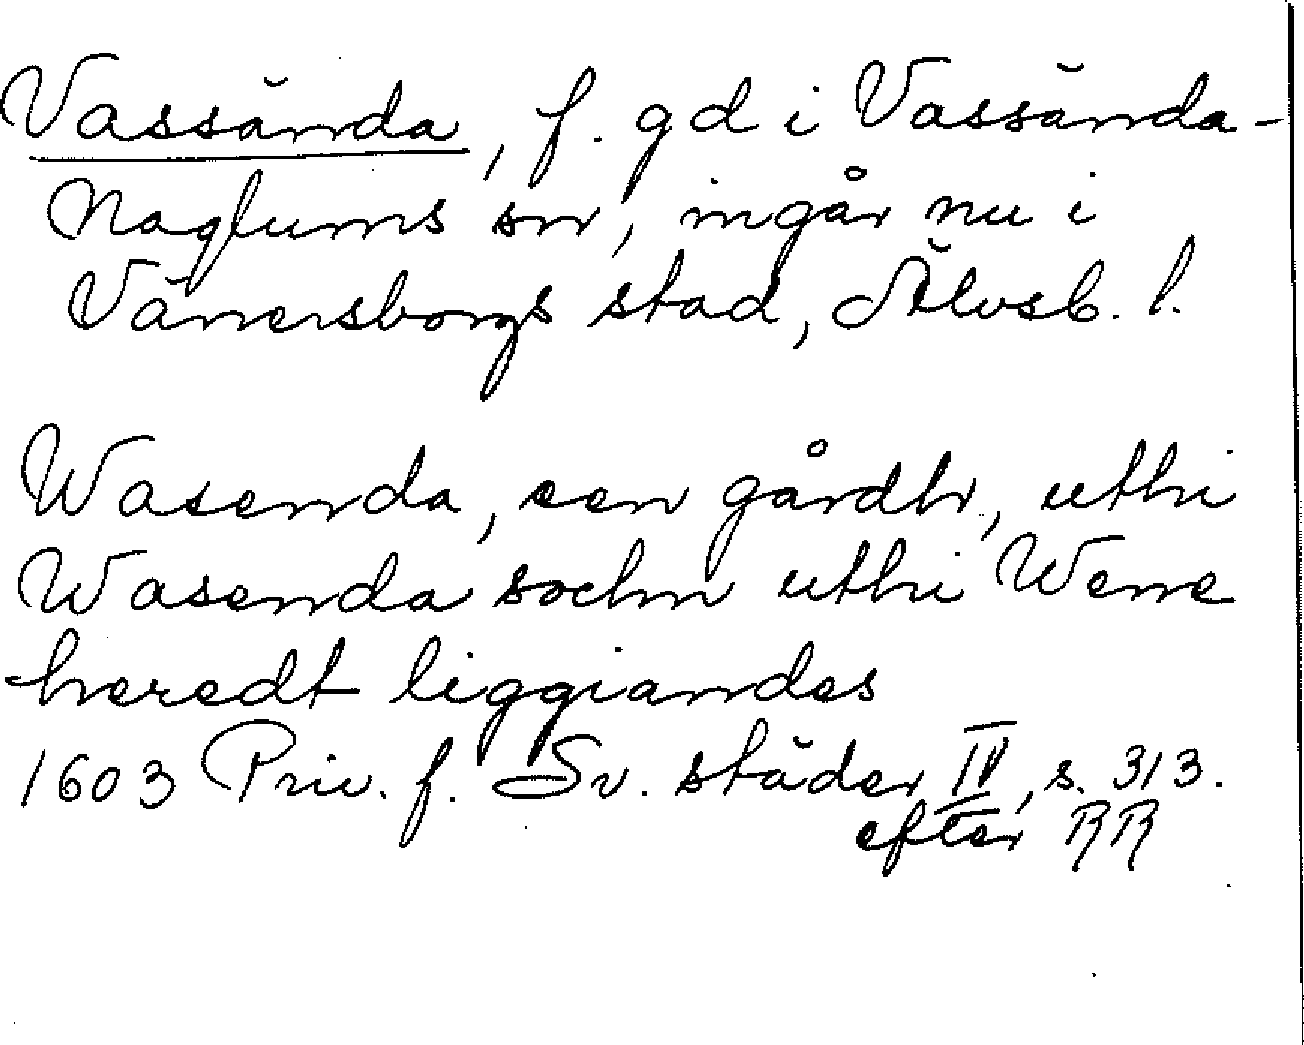 Vassända, f. gd i Vassända-
Naglums sn, ingår nu i
Vänersborgs stad, Älvsb. l.
Wasenda, een gårdh, uthi
Wasenda sochn uthi Wene
heredt liggiandes
1603 Priv. f. Sv. städer IV, s. 313.
efter RR